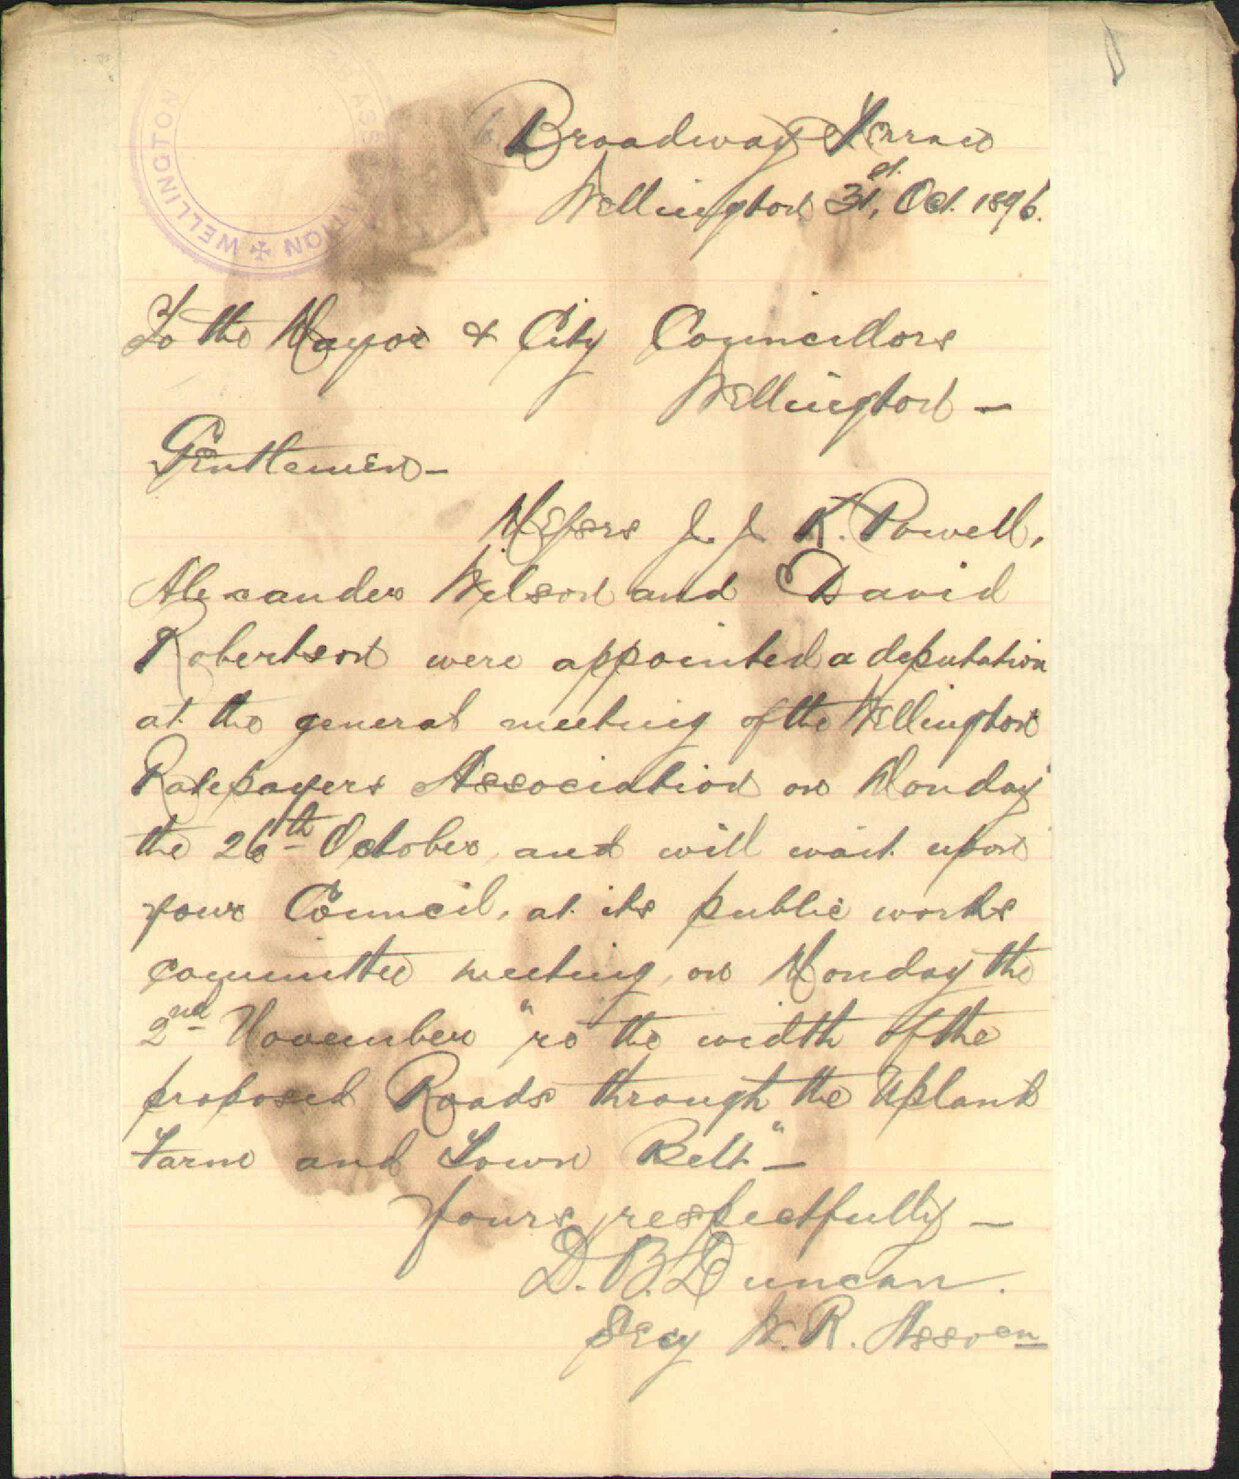 WELLINGTON ✠ ASSOCIATION
6 Broadway Terrace
Wellington 31st. Oct. 1896.
To the Mayor & City Councillors
Wellington —
Gentlemen —
Messrs J. J. K. Powell,
Alexander Wilson and David
Robertson were appointed a deputation
at the general meeting of the Wellington
Ratepayers Association on Monday
the 26th October, and will wait upon
your Council, at its public works
committee meeting, on Monday the
2nd November "re the width of the
proposed Roads through the Upland
Farm and Town Belt" —
Yours respectfully —
D. B. Duncan.
Secy W. R. Assocn